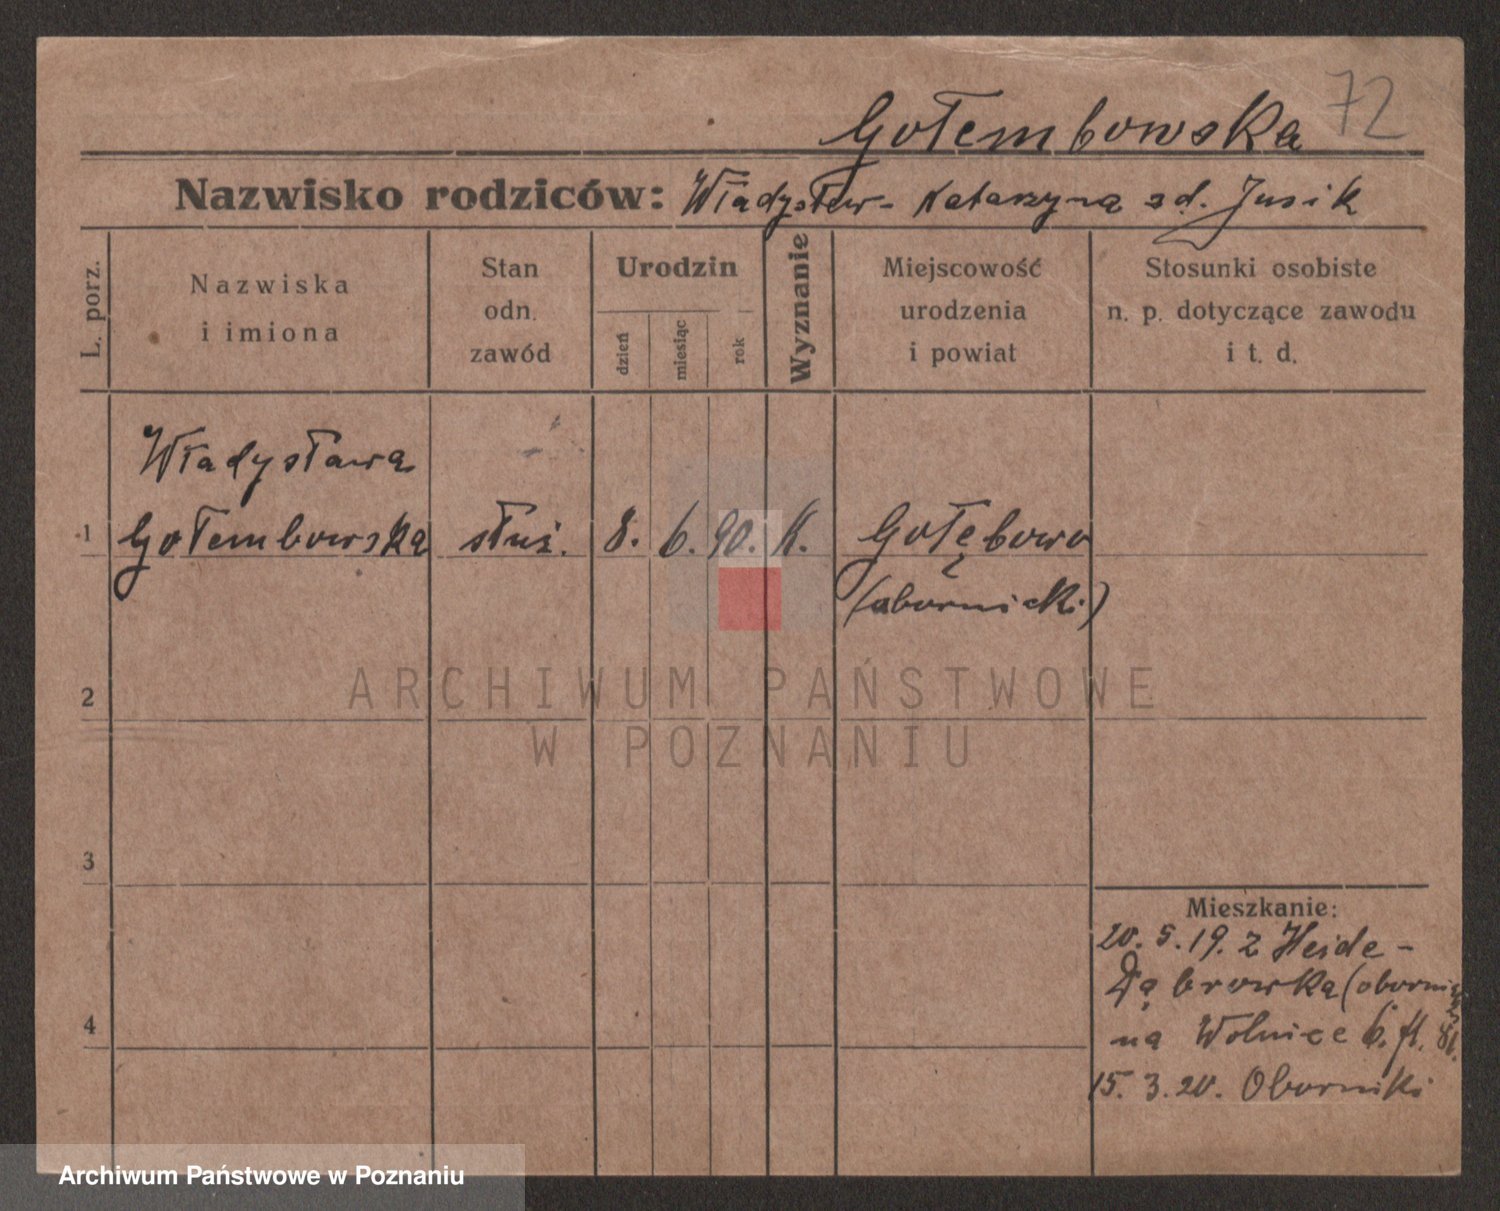 72
Gołembowska
Nazwisko rodziców: Władysław - Katarzyna zd. Jusik
L. porz.
Nazwiska
i imiona
Stan
odn.
zawód
Urodzin
dzień
miesiąc
rok
Wyznanie
Miejscowość
urodzenia
i powiat
Stosunki osobiste
n. p. dotyczące zawodu
i t. d.
Władysława
1 Gołembowska służ. 8. 6. 90. K. Gołębowo
(obornicki)
ARCHIWUM PAŃSTWOWE
2
W POZNANIU
3
Mieszkanie:
20. 5. 19. z Heide -
Dąbrowka (obornic
4
na Wolnice 6. fl.
15. 3. 20. Oborniki
Archiwum Państwowe w Poznaniu